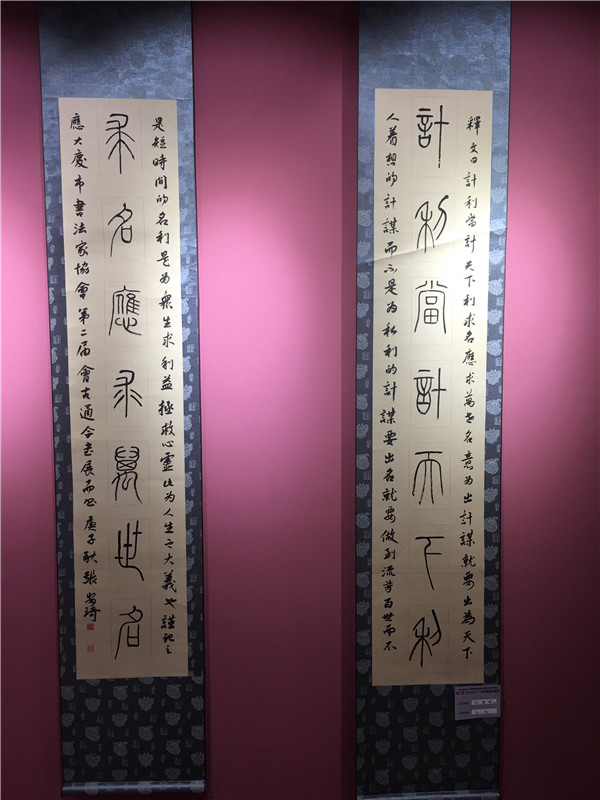 釋文曰計利當計天下利求名應求萬世名意为出計謀就要出為天下
計利當計天下利
人着想的計謀而不是为私利的計謀要出名就要做到流芳百世而不
是短時間的名利是为衆生求利益拯救心靈此为人生之大義也謹記之
求名應求萬世名
應大慶市書法家協會第二届會古通今書展而書庚子秋張安琦